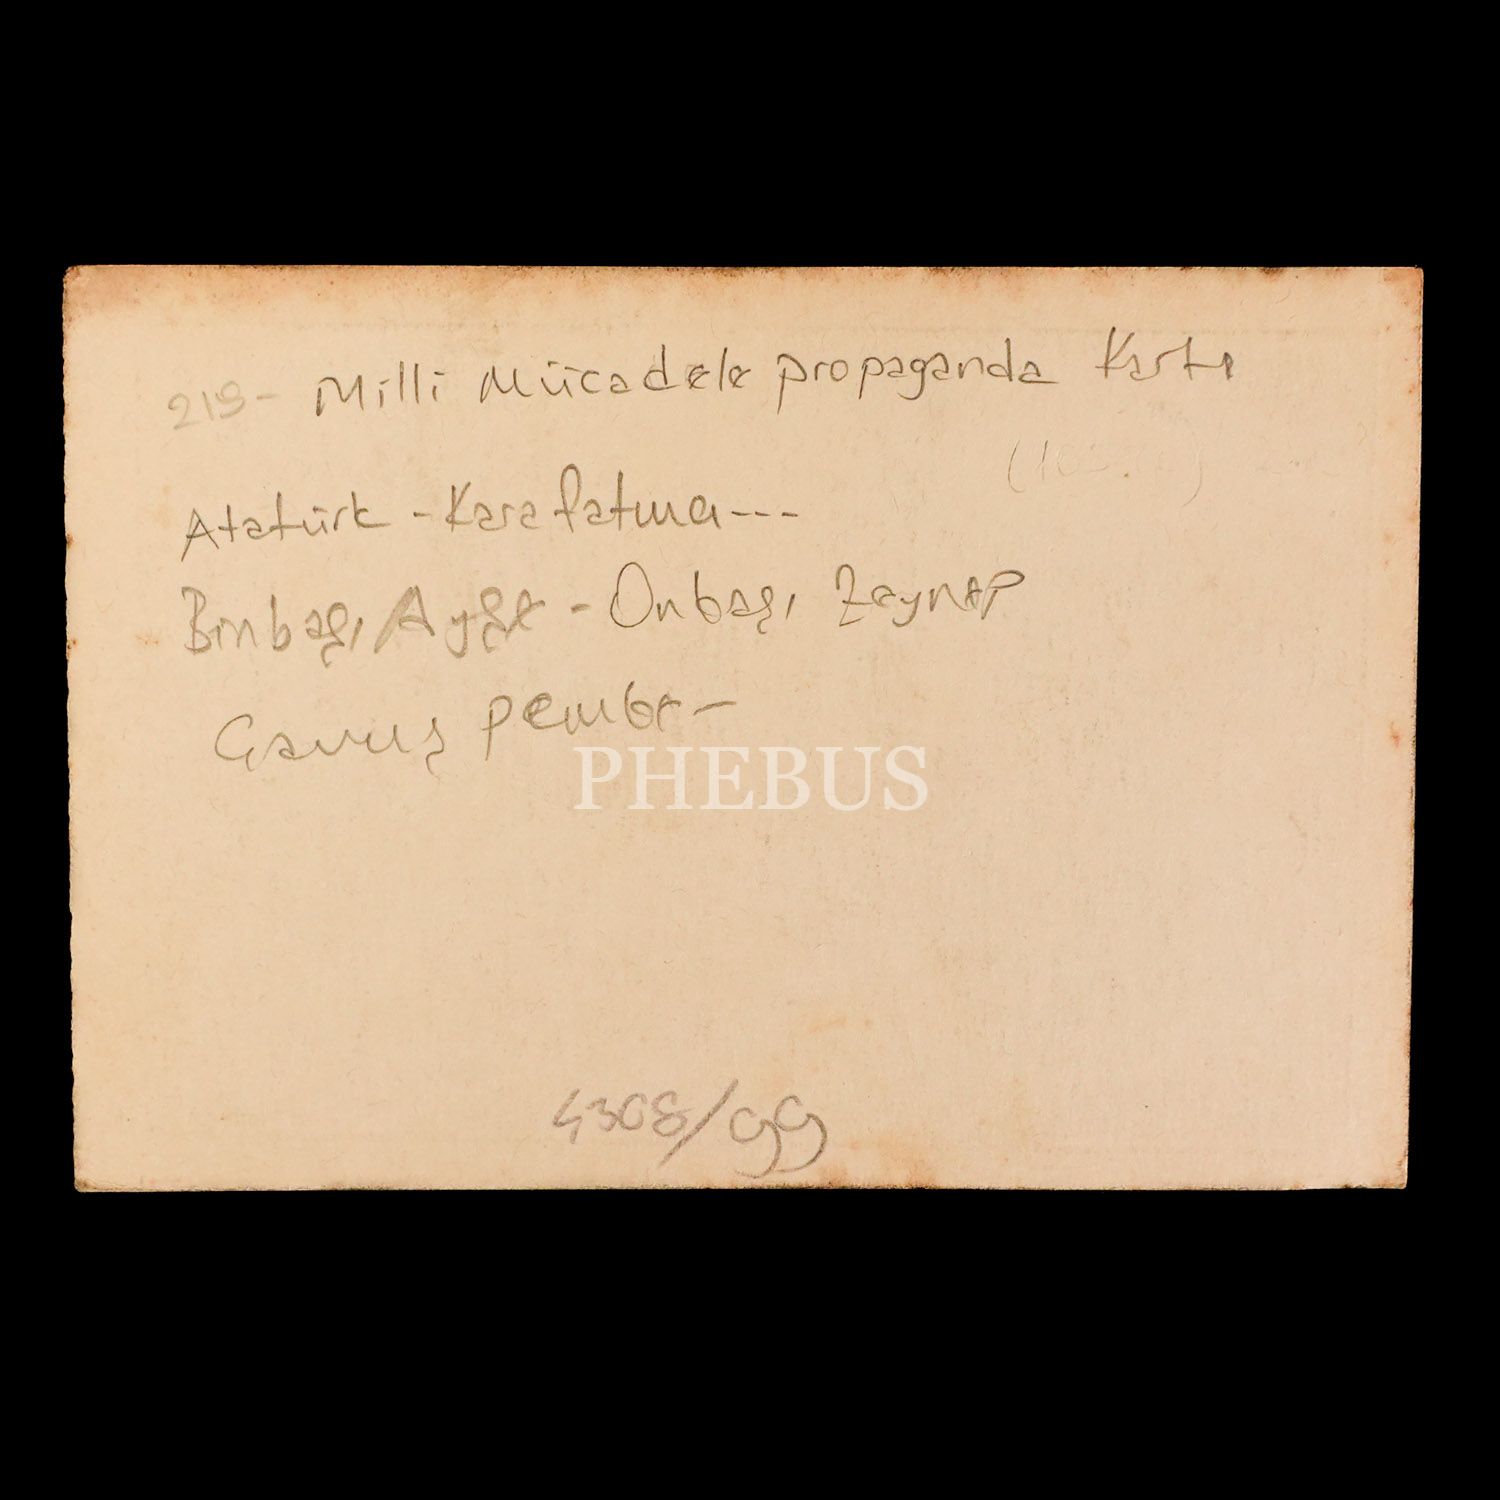 219- Milli Mücadele propaganda Kartı
Atatürk - Kara Fatma---
Binbaşı Ayşe - Onbaşı Zeynep
Çavuş Pembe-
PHEBUS
4308/99